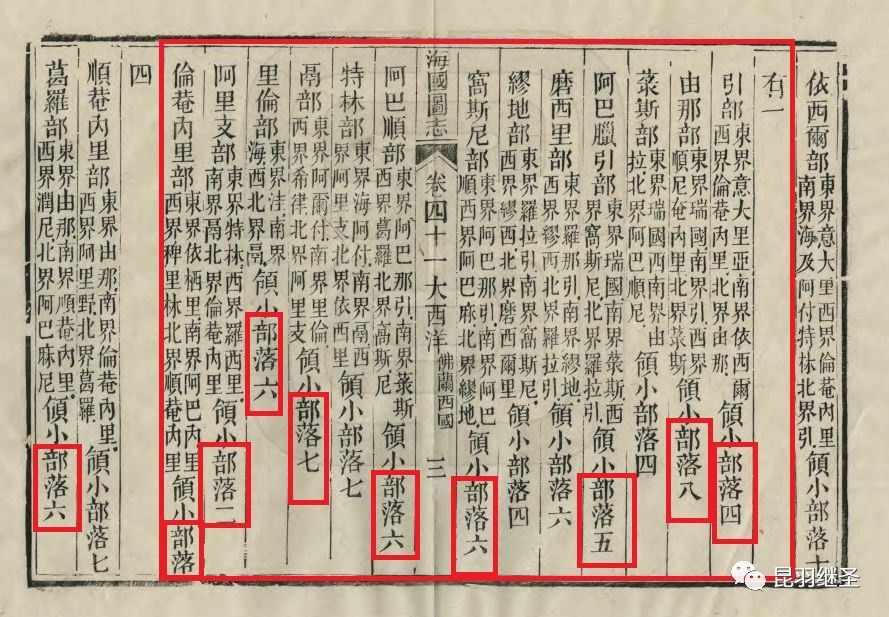 依西爾部東界意大里西界倫菴內里南界海及阿付特林北界引領小部落十
有一
引部東界意大里亞南界依西爾西界倫菴內里北界由那領小部落四
由那部東界瑞國南界引西界順尼奄內里北界蒸斯領小部落八
蒸斯部東界瑞國西南界由拉北界阿巴順尼領小部落四
阿巴臘引部東界瑞國南界蒸斯西界窩斯尼北界羅拉引領小部落五
磨西里部東界羅那引南界繆地西界繆西北界羅拉引領小部落六
繆地部東界羅拉引南界窩斯尼西界繆西北界磨西爾里領小部落四
窩斯尼部東界阿巴那引南界阿巴順西界阿巴麻北界繆地領小部落六
海國圖志 卷四十一 大西洋 佛蘭西國 三
阿巴順部東界阿巴那引南界蒸斯西界葛羅北界窩斯尼領小部落六
特林部東界海阿付南界鬲西界阿里支北界依西里領小部落七
鬲部東界阿爾付南界里倫西界希律北界阿里支領小部落七
里倫部東界洼南界海西北界鬲領小部落六
阿里支部東界特林西界羅西里南界鬲北界倫菴內里領小部落二
倫菴內里部東界依栖里南界阿巴內里西界稗里林北界順菴內里領小部落
四
順菴內里部東界由那南界倫菴內里西界阿里野北界葛羅領小部落七
葛羅部東界由那南界順菴內里西界潤尼北界阿巴麻尼領小部落六
昆羽继圣